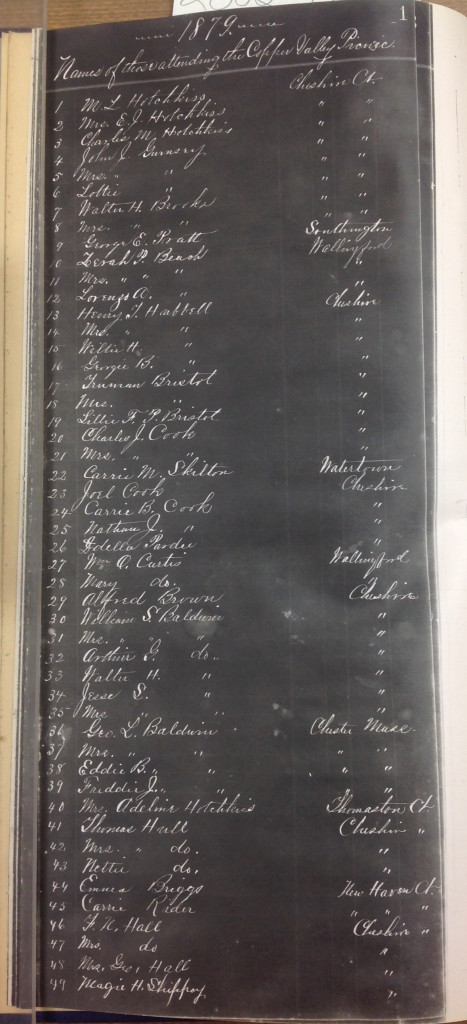 1
1879.
Names of those attending the Copper Valley Picnic.
1 M. L. Hotchkiss Cheshire Ct.
2 Mrs. E. J. Hotchkiss " "
3 Charlie M. Hotchkiss " "
4 John J. Gurnsey " "
5 Mrs. " " " "
6 Lottie " " "
7 Walter H. Brooks " "
8 Mrs. " " " "
9 George E. Pratt Southington
10 Zerah P. Beach Wallingford
11 Mrs. " " " "
12 Lorenzo A. " "
13 Henry T. Hubbell Cheshire
14 Mrs. " " "
15 Willie H. " "
16 Georgie B. " "
17 Truman Bristol "
18 Mrs. " "
19 Lillie F. P. Bristol "
20 Charles J. Cook "
21 Mrs. " " "
22 Carrie M. Skilton Watertown
23 Joel Cook Cheshire
24 Carrie B. Cook "
25 Nathan J. " "
26 Pardee "
27 Wm. O. Curtis Wallingford
28 Mary do. "
29 Alfred Brown Cheshire
30 William S. Baldwin "
31 Mrs. " " " "
32 Arthur G. do. "
33 Walter H. " "
34 Jesse S. " "
35 Mrs. " " "
36 Geo. L. Baldwin Chester Mass.
37 Mrs. " " " "
38 Eddie B. " " "
39 Freddie J. " " "
40 Mrs. Adeline Hotchkiss Thomaston Ct.
41 Thomas Hall Cheshire "
42 Mrs. " do. "
43 Nettie do. "
44 Emma Briggs New Haven Ct.
45 Carrie Rider " " "
46 F. N. Hall Cheshire "
47 Mrs. do "
48 Mrs. Geo. Hall "
49 Magie H. "